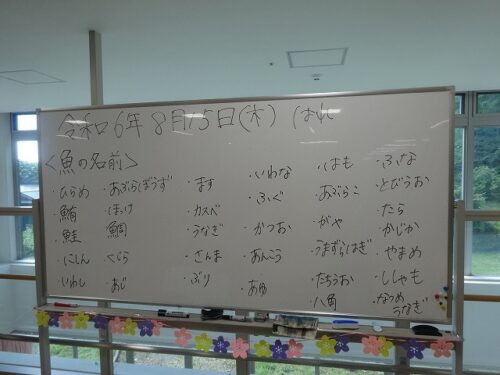 令和6年 8月15日(木) はれ
<魚の名前>
・ひらめ
・鮪
・鮭
・にしん
・いわし
・あぶらぼうず
・ほっけ
・鯛
・くじら
・あじ
・ます
・カスベ
・うなぎ
・さんま
・ぶり
・いわな
・ふぐ
・かつお
・あんこう
・あゆ
・はも
・あぶらこ
・がや
・うまずらはぎ
・たちうお
・八角
・ふな
・とびうお
・たら
・かじか
・やまめ
・ししゃも
・なつめうなぎ